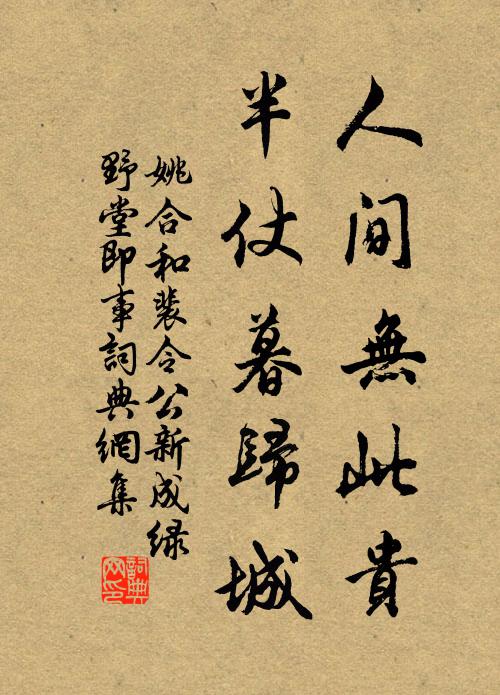 人間無此貴
半仗暮歸城
姚合和裴令公新成绿
野堂即事詞典網集
詞典网印